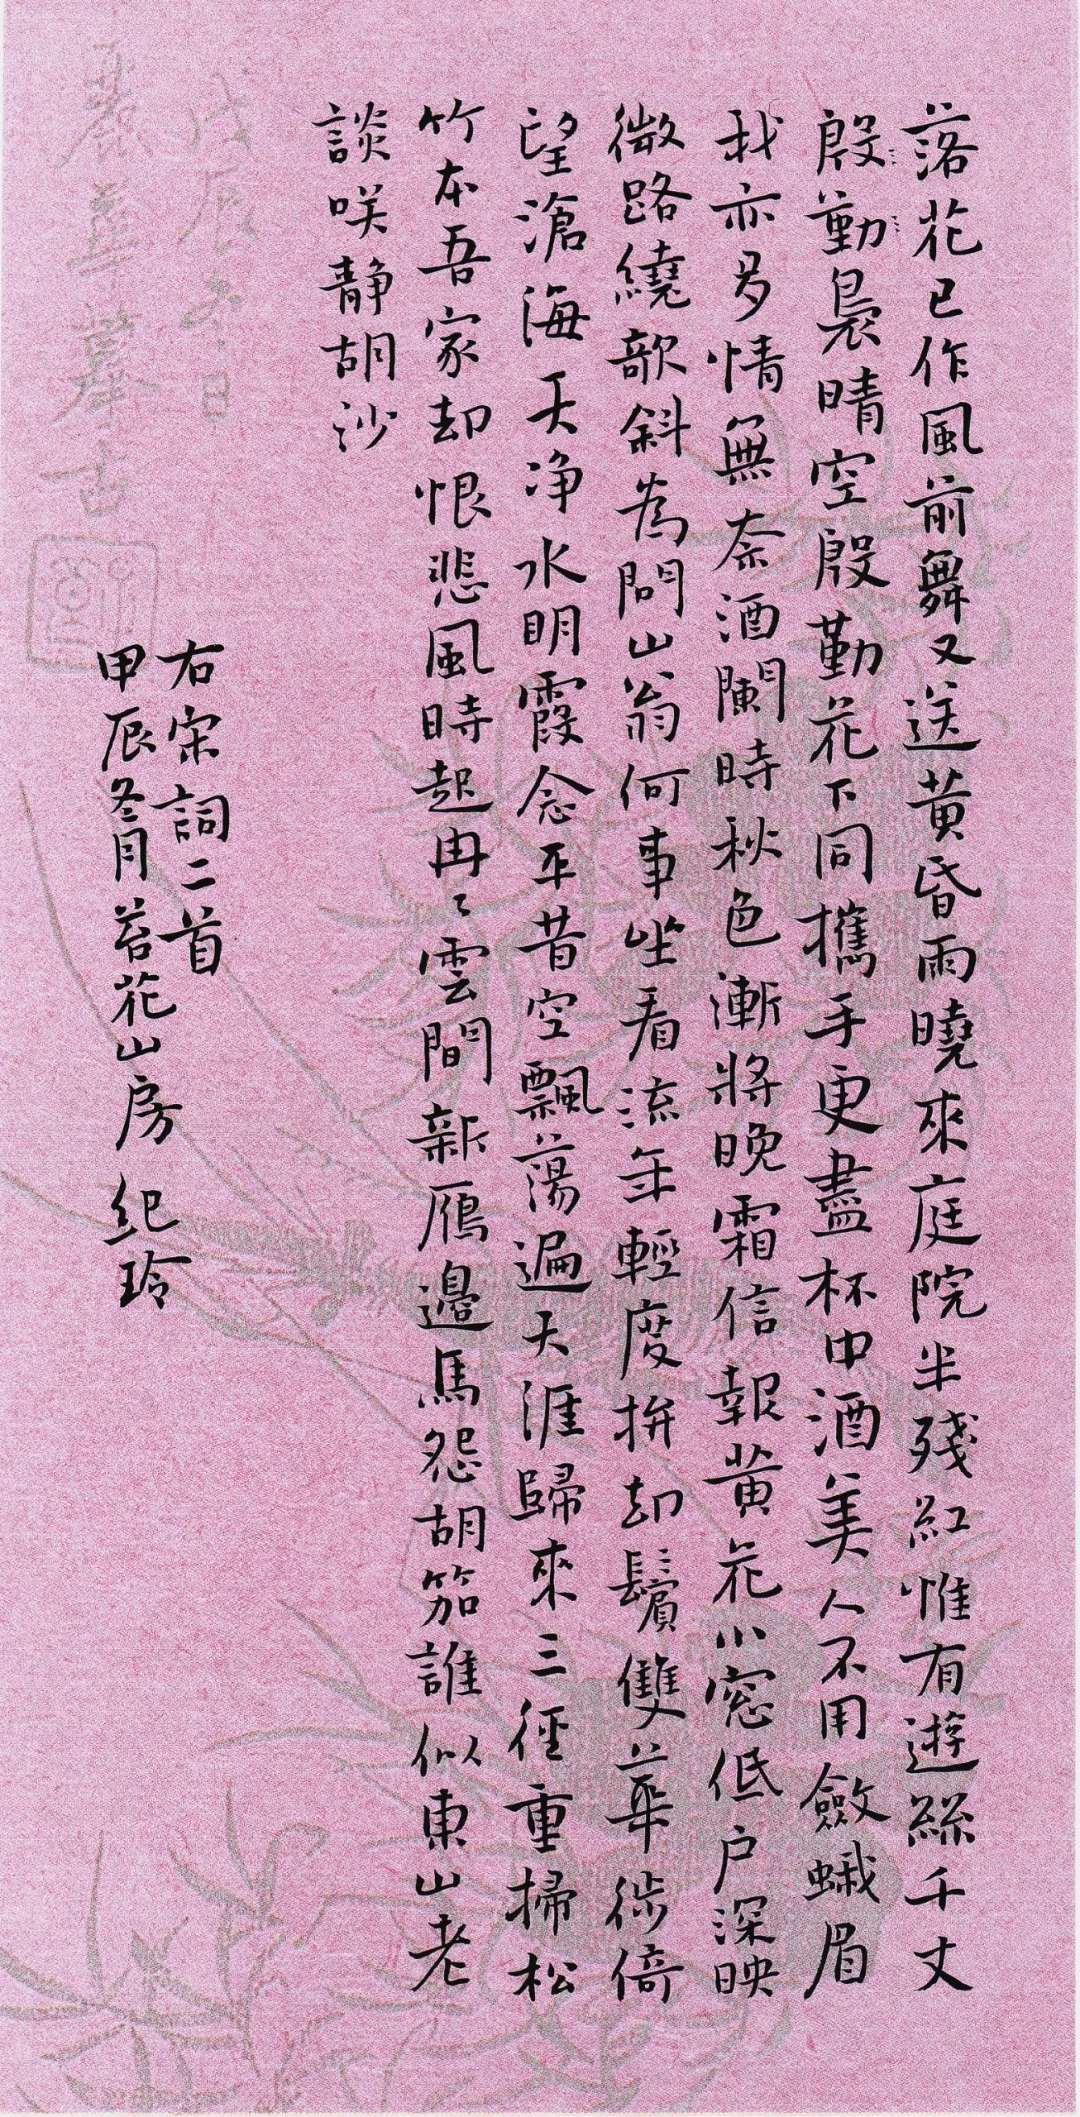 落花已作風前舞又送黃昏雨曉來庭院半殘紅惟有遊絲千丈
殷勤裊晴空殷勤花下同攜手更盡杯中酒美人不用斂蛾眉
我亦多情無奈酒闌時秋色漸將晚霜信報黃花小窓低户深映
微路繞欹斜為問山翁何事坐看流年輕度拚却鬢雙華徙倚
望滄海天浄水明霞念平昔空飄蕩遍天涯歸來三徑重掃松
竹本吾家却恨悲風時起冉〻雲間新雁邊馬怨胡笳誰似東山老
談咲静胡沙
右宋詞二首
甲辰冬月苔花山房 纪玲
戊辰